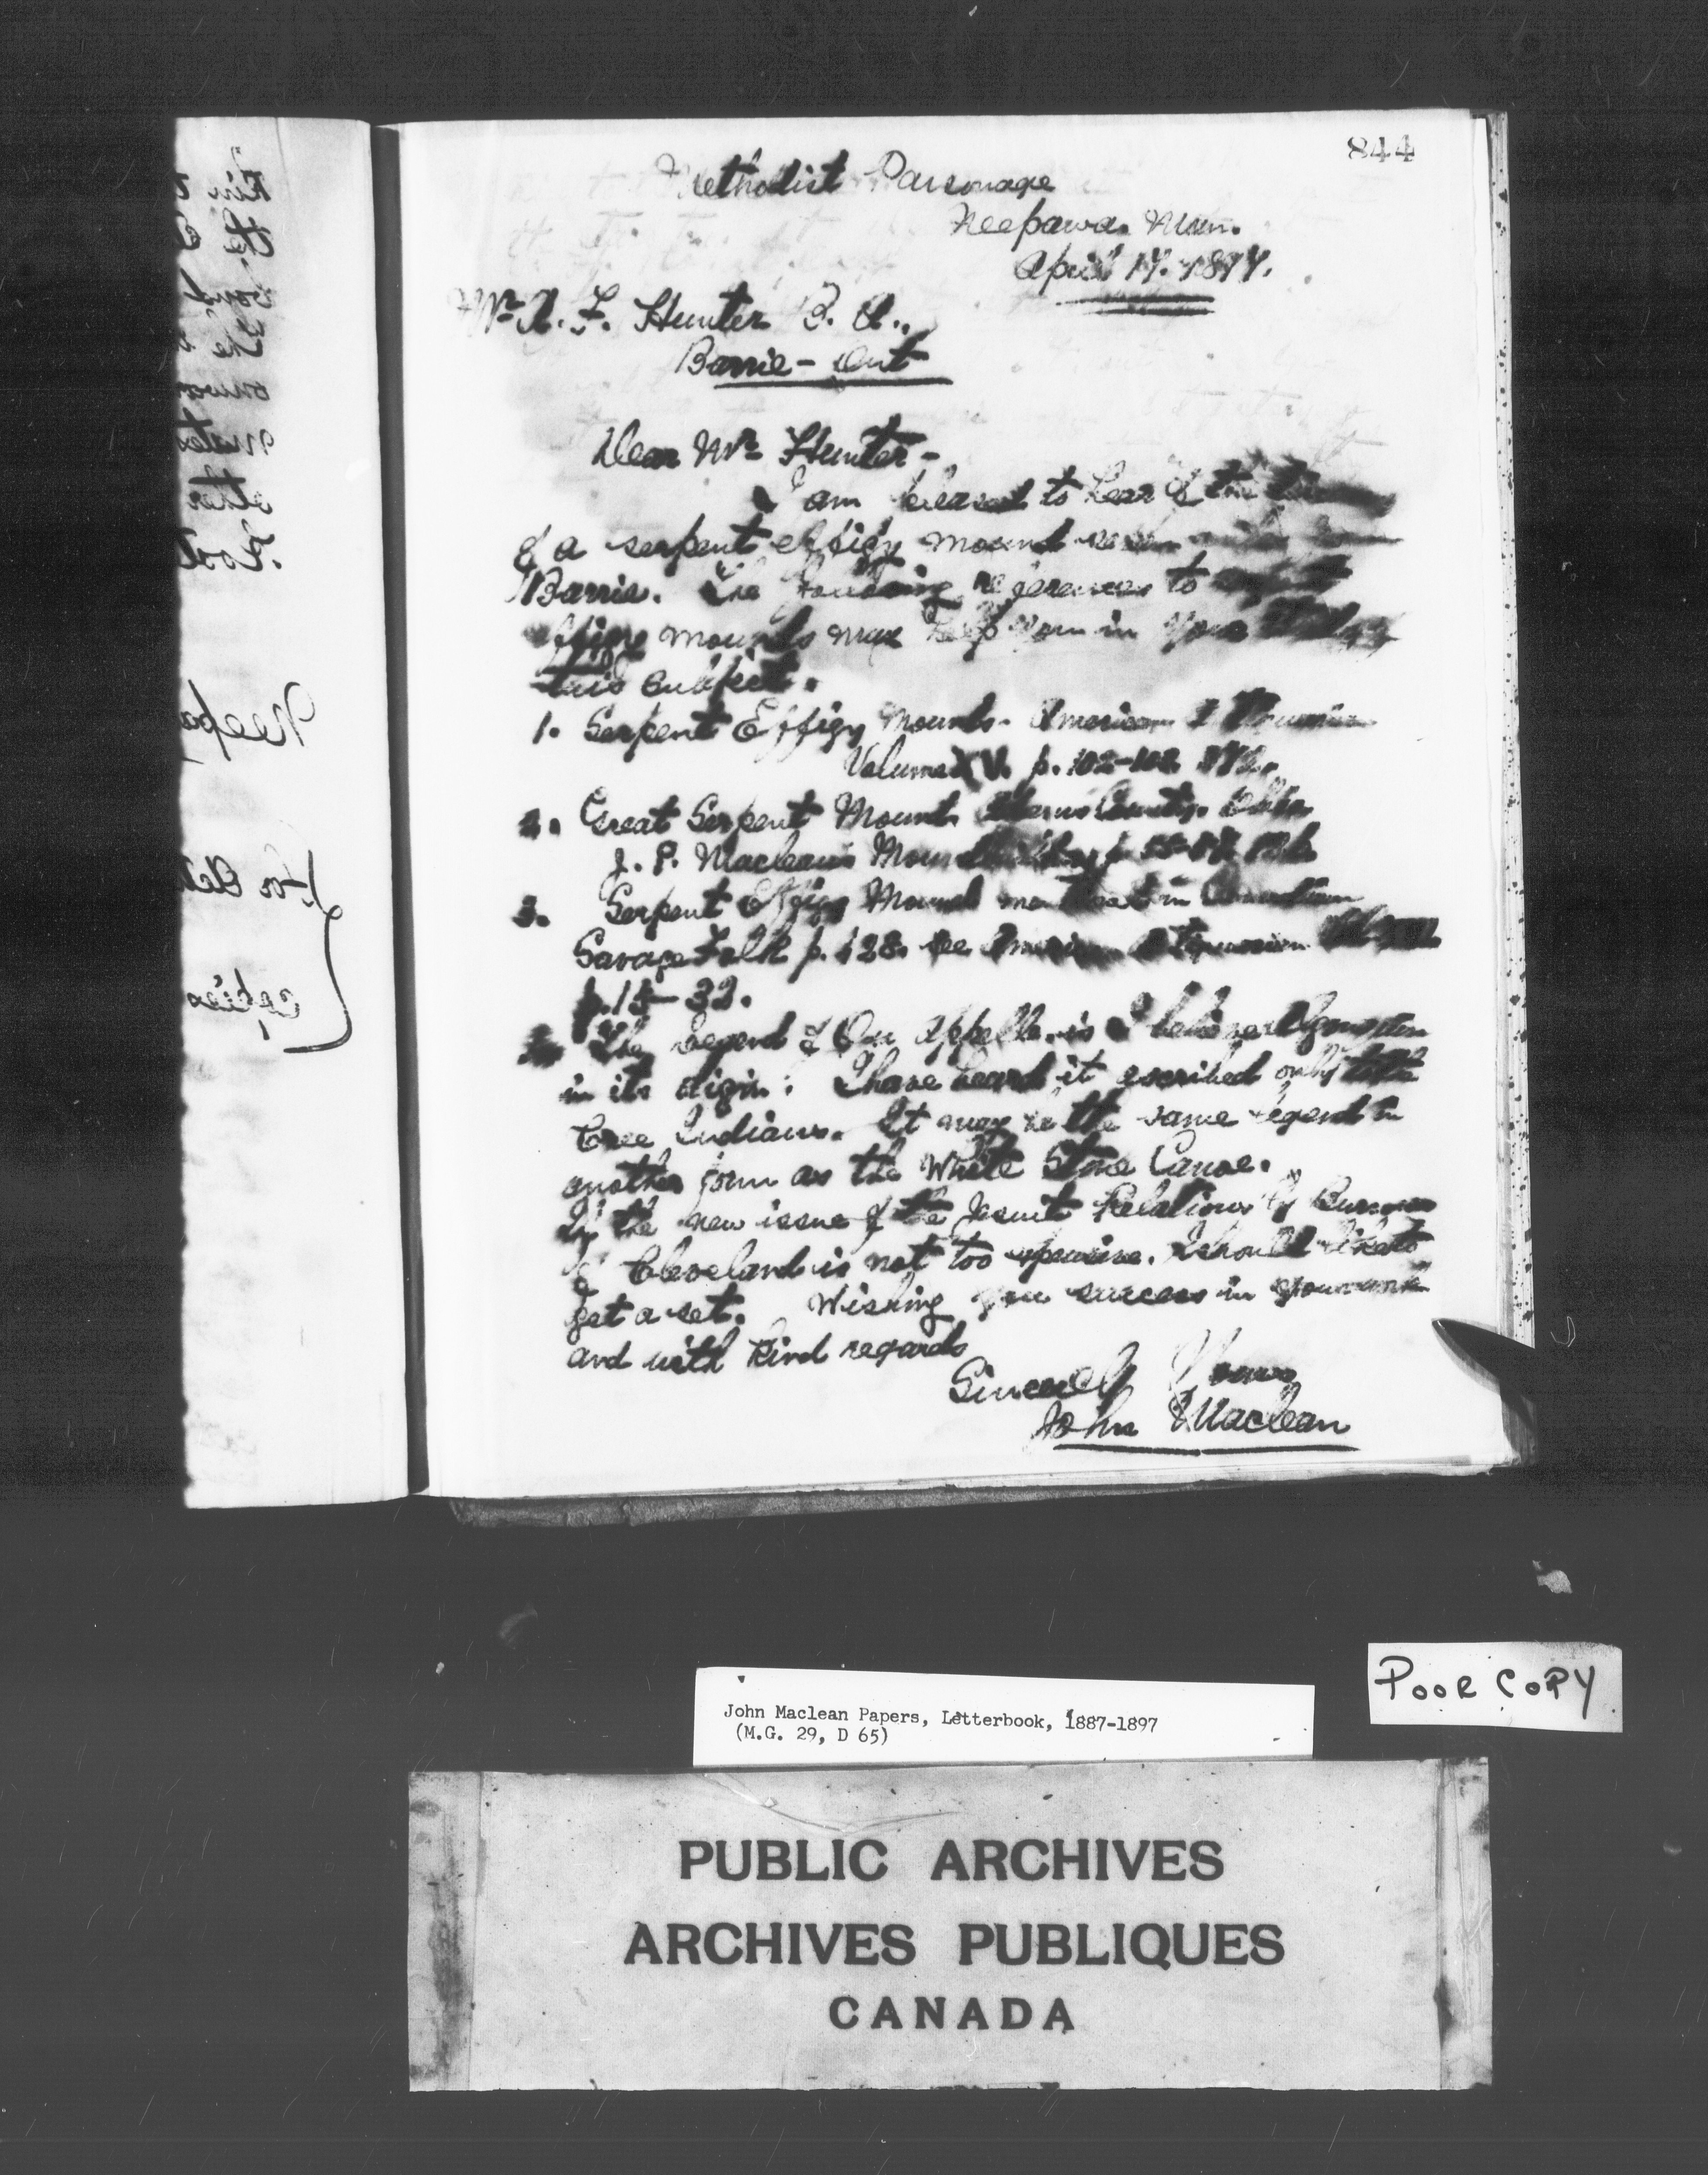 844
Methodist Parsonage
Neepawa. Man.
April 17. 1897.
Mr A. F. Hunter B. A.,
Barrie - Ont
Dear Mr Hunter -
I am pleased to hear of the
of a serpent effigy mound
Barrie. The following references to
effigy mounds may help you in your
this subject.
1. Serpent Effigy Mounds. American
Volume XV. p. 102-108
2. Great Serpent Mound. Adams County. Ohio
J. P. Maclean's Moundbuilders p
3. Serpent Effigy Mound in Canadian
Savage Folk p. 128. see American Antiquarian
p. 15-32.
The Legend of Qu Appelle is I believe Algonquin
in its origin. I have heard it ascribed only to the
Cree Indians. It may be the same legend in
another form as the White Stone Canoe.
If the new issue of the Jesuit Relations by Burrows
of Cleveland is not too expensive. I should like to
get a set. Wishing you success in your work
and with kind regards
Sincerely Yours
John Maclean
POOR COPY
John Maclean Papers, Letterbook, 1887-1897
(M.G. 29, D 65)
PUBLIC ARCHIVES
ARCHIVES PUBLIQUES
CANADA